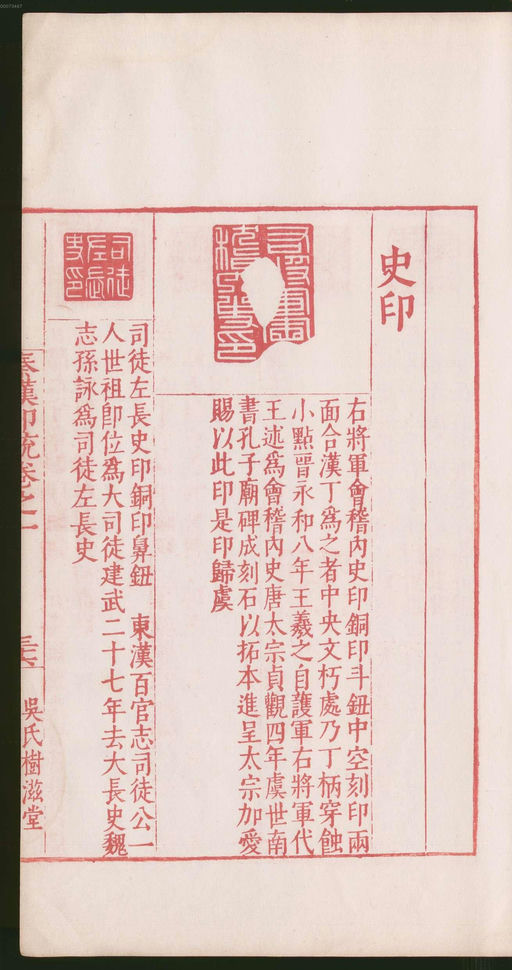 史印
右將軍會稽內史印銅印斗鈕中空刻印兩
面合漢丁為之者中央文朽處乃丁柄穿蝕
小點晉永和八年王羲之自護軍右將軍代
王述為會稽內史唐太宗貞觀四年虞世南
書孔子廟碑成刻石以拓本進呈太宗加愛
賜以此印是印歸虞
司徒左長史印
司徒左長史印銅印鼻鈕　東漢百官志司徒公一
人世祖卽位為大司徒建武二十七年去大長史魏
志孫詠為司徒左長史
秦漢印統卷之一
吳氏樹滋堂
00073447